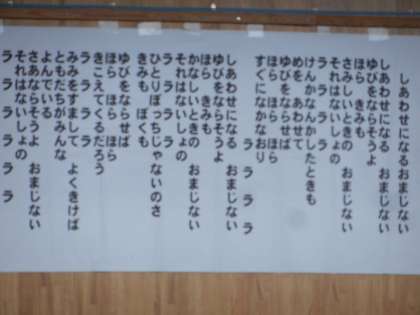 しあわせになる　おまじない
しあわせになる　おまじない
ゆびをならそうよ
ほら　きみも
さみしいときの　おまじない
それはないしょの
ラ　ラ　ラ　ラ　ラ
けんかなんかしたときも
めを　あわせて
ゆびを　ならせば
ほら　ほら　ほら
すぐになかなおり
ラ　ラ　ラ　ラ
しあわせになる　おまじない
ゆびをならそうよ
ほら　きみも
かなしいときの　おまじない
それはないしょの
ラ　ラ　ラ　ラ　ラ
ひとりぼっちじゃないのさ
きみも　ぼくも
ゆびをならせば
ほら　ほら　ほら
きこえてくるだろう
ラ　ラ　ラ　ラ
みみをすまして　よくきけば
ともだちがみんな
よんでいる
さあならそうよ　おまじない
それはないしょの
ラ　ラ　ラ　ラ　ラ　ラ